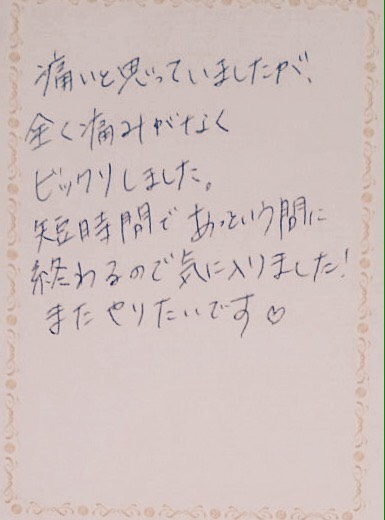 痛いと思っていましたが、
全く痛みがなく
ビックリしました。
短時間であっという間に
終わるので気に入りました!
またやりたいです♡